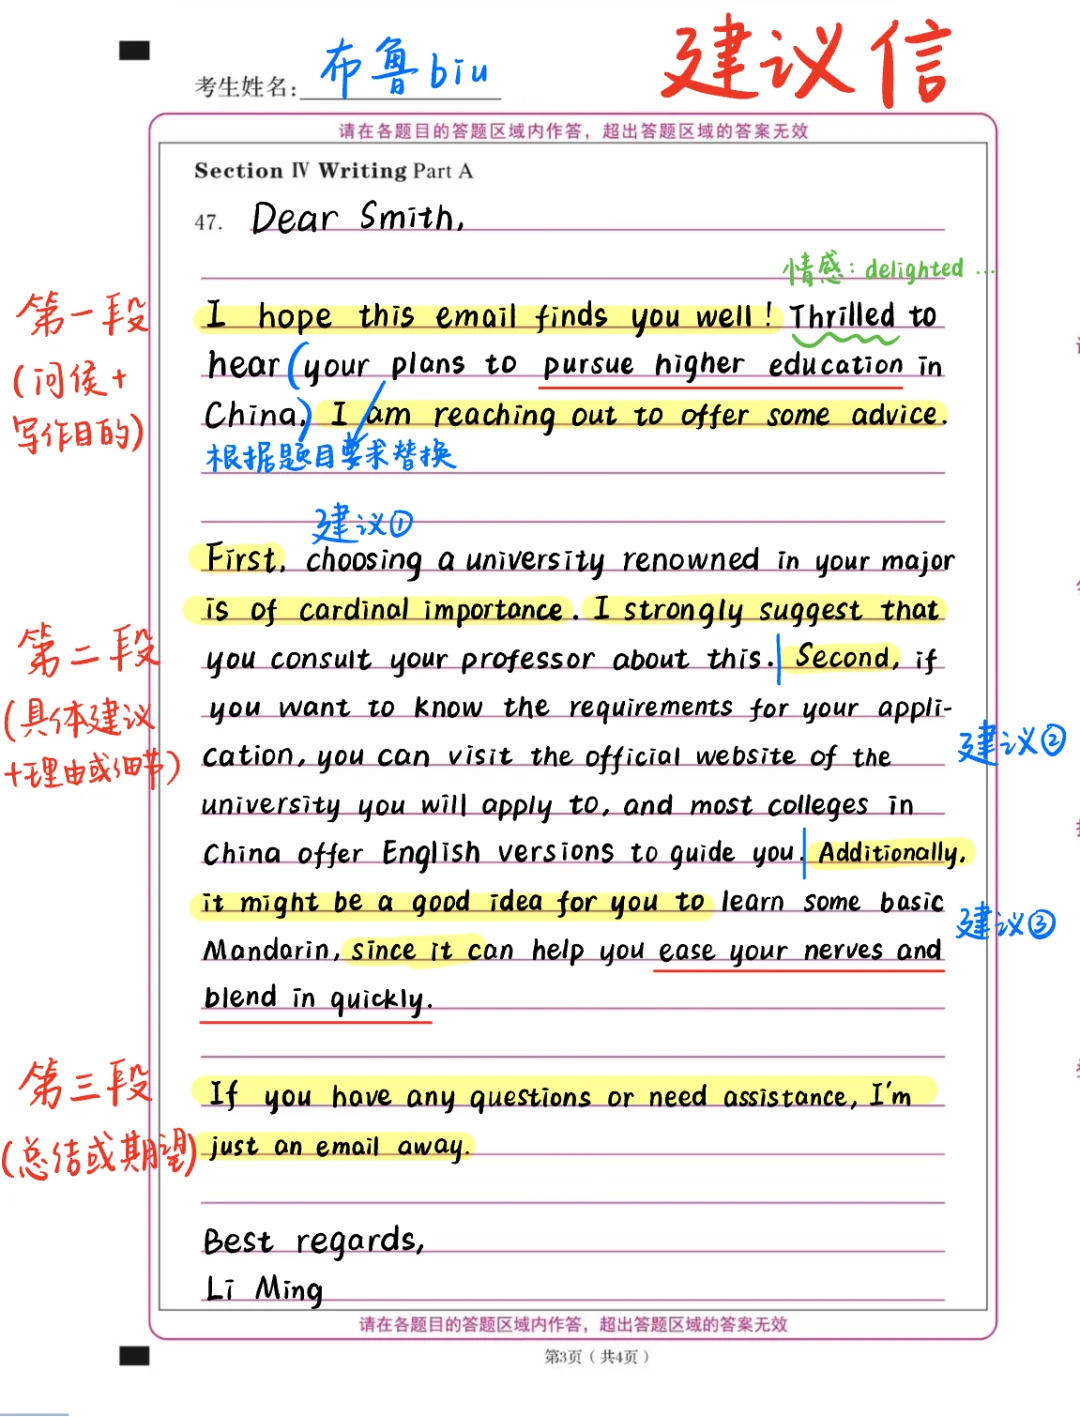 建议信
考生姓名: 布鲁biu
请在各题目的答题区域内作答，超出答题区域的答案无效
Section Ⅳ Writing Part A
47. Dear Smith,
情感: delighted ...
第一段
(问侯+
写作目的)
I hope this email finds you well! Thrilled to
hear (your plans to pursue higher education in
China,) I am reaching out to offer some advice.
根据题目要求替换
建议①
First, choosing a university renowned in your major
is of cardinal importance. I strongly suggest that
第二段
(具体建议
+理由或细节)
you consult your professor about this. Second, if
you want to know the requirements for your appli-
cation, you can visit the official website of the
建议②
university you will apply to, and most colleges in
China offer English versions to guide you. Additionally,
it might be a good idea for you to learn some basic
建议③
Mandarin, since it can help you ease your nerves and
blend in quickly.
第三段
(总结或期望)
If you have any questions or need assistance, I'm
just an email away.
Best regards,
Li Ming
请在各题目的答题区域内作答，超出答题区域的答案无效
第3页（共4页）